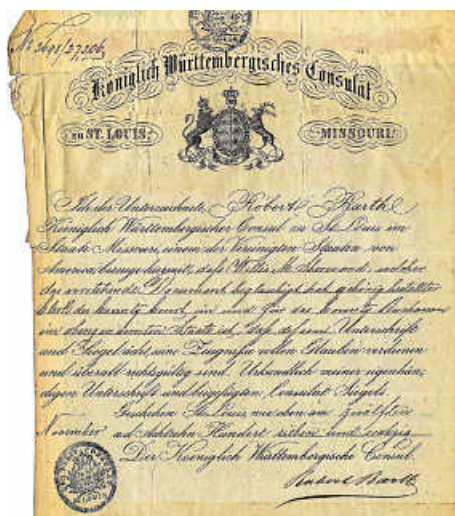 No 2698/27,206
Königlich Württembergisches Consulat
zu ST. LOUIS, MISSOURI.
Ich der Unterzeichnete, Robert Barth
Königlich Württembergischer Consul zu St. Louis im
Staate Missouri, einem der Vereinigten Staaten von
America, bezeuge hiermit, dass Willis M. welcher
das vorstehende Document beglaubigt hat, gehörig bestellter
Clerk der County Court, in und für das County Buchanan
im oben genannten Staate ist, dass dessen Unterschrift
und Siegel ächt, seine Zeugnisse vollen Glauben verdienen
und überall rechtsgültig sind. Urkundlich meiner eigenhän-
digen Unterschrift und beigefügten Consulat Siegels.
Geschehen St. Louis, wie oben am zwölften
November ad Achtzehn Hundert sieben und sechzig
Der Koeniglich Württembergische Consul.
Robert Barth